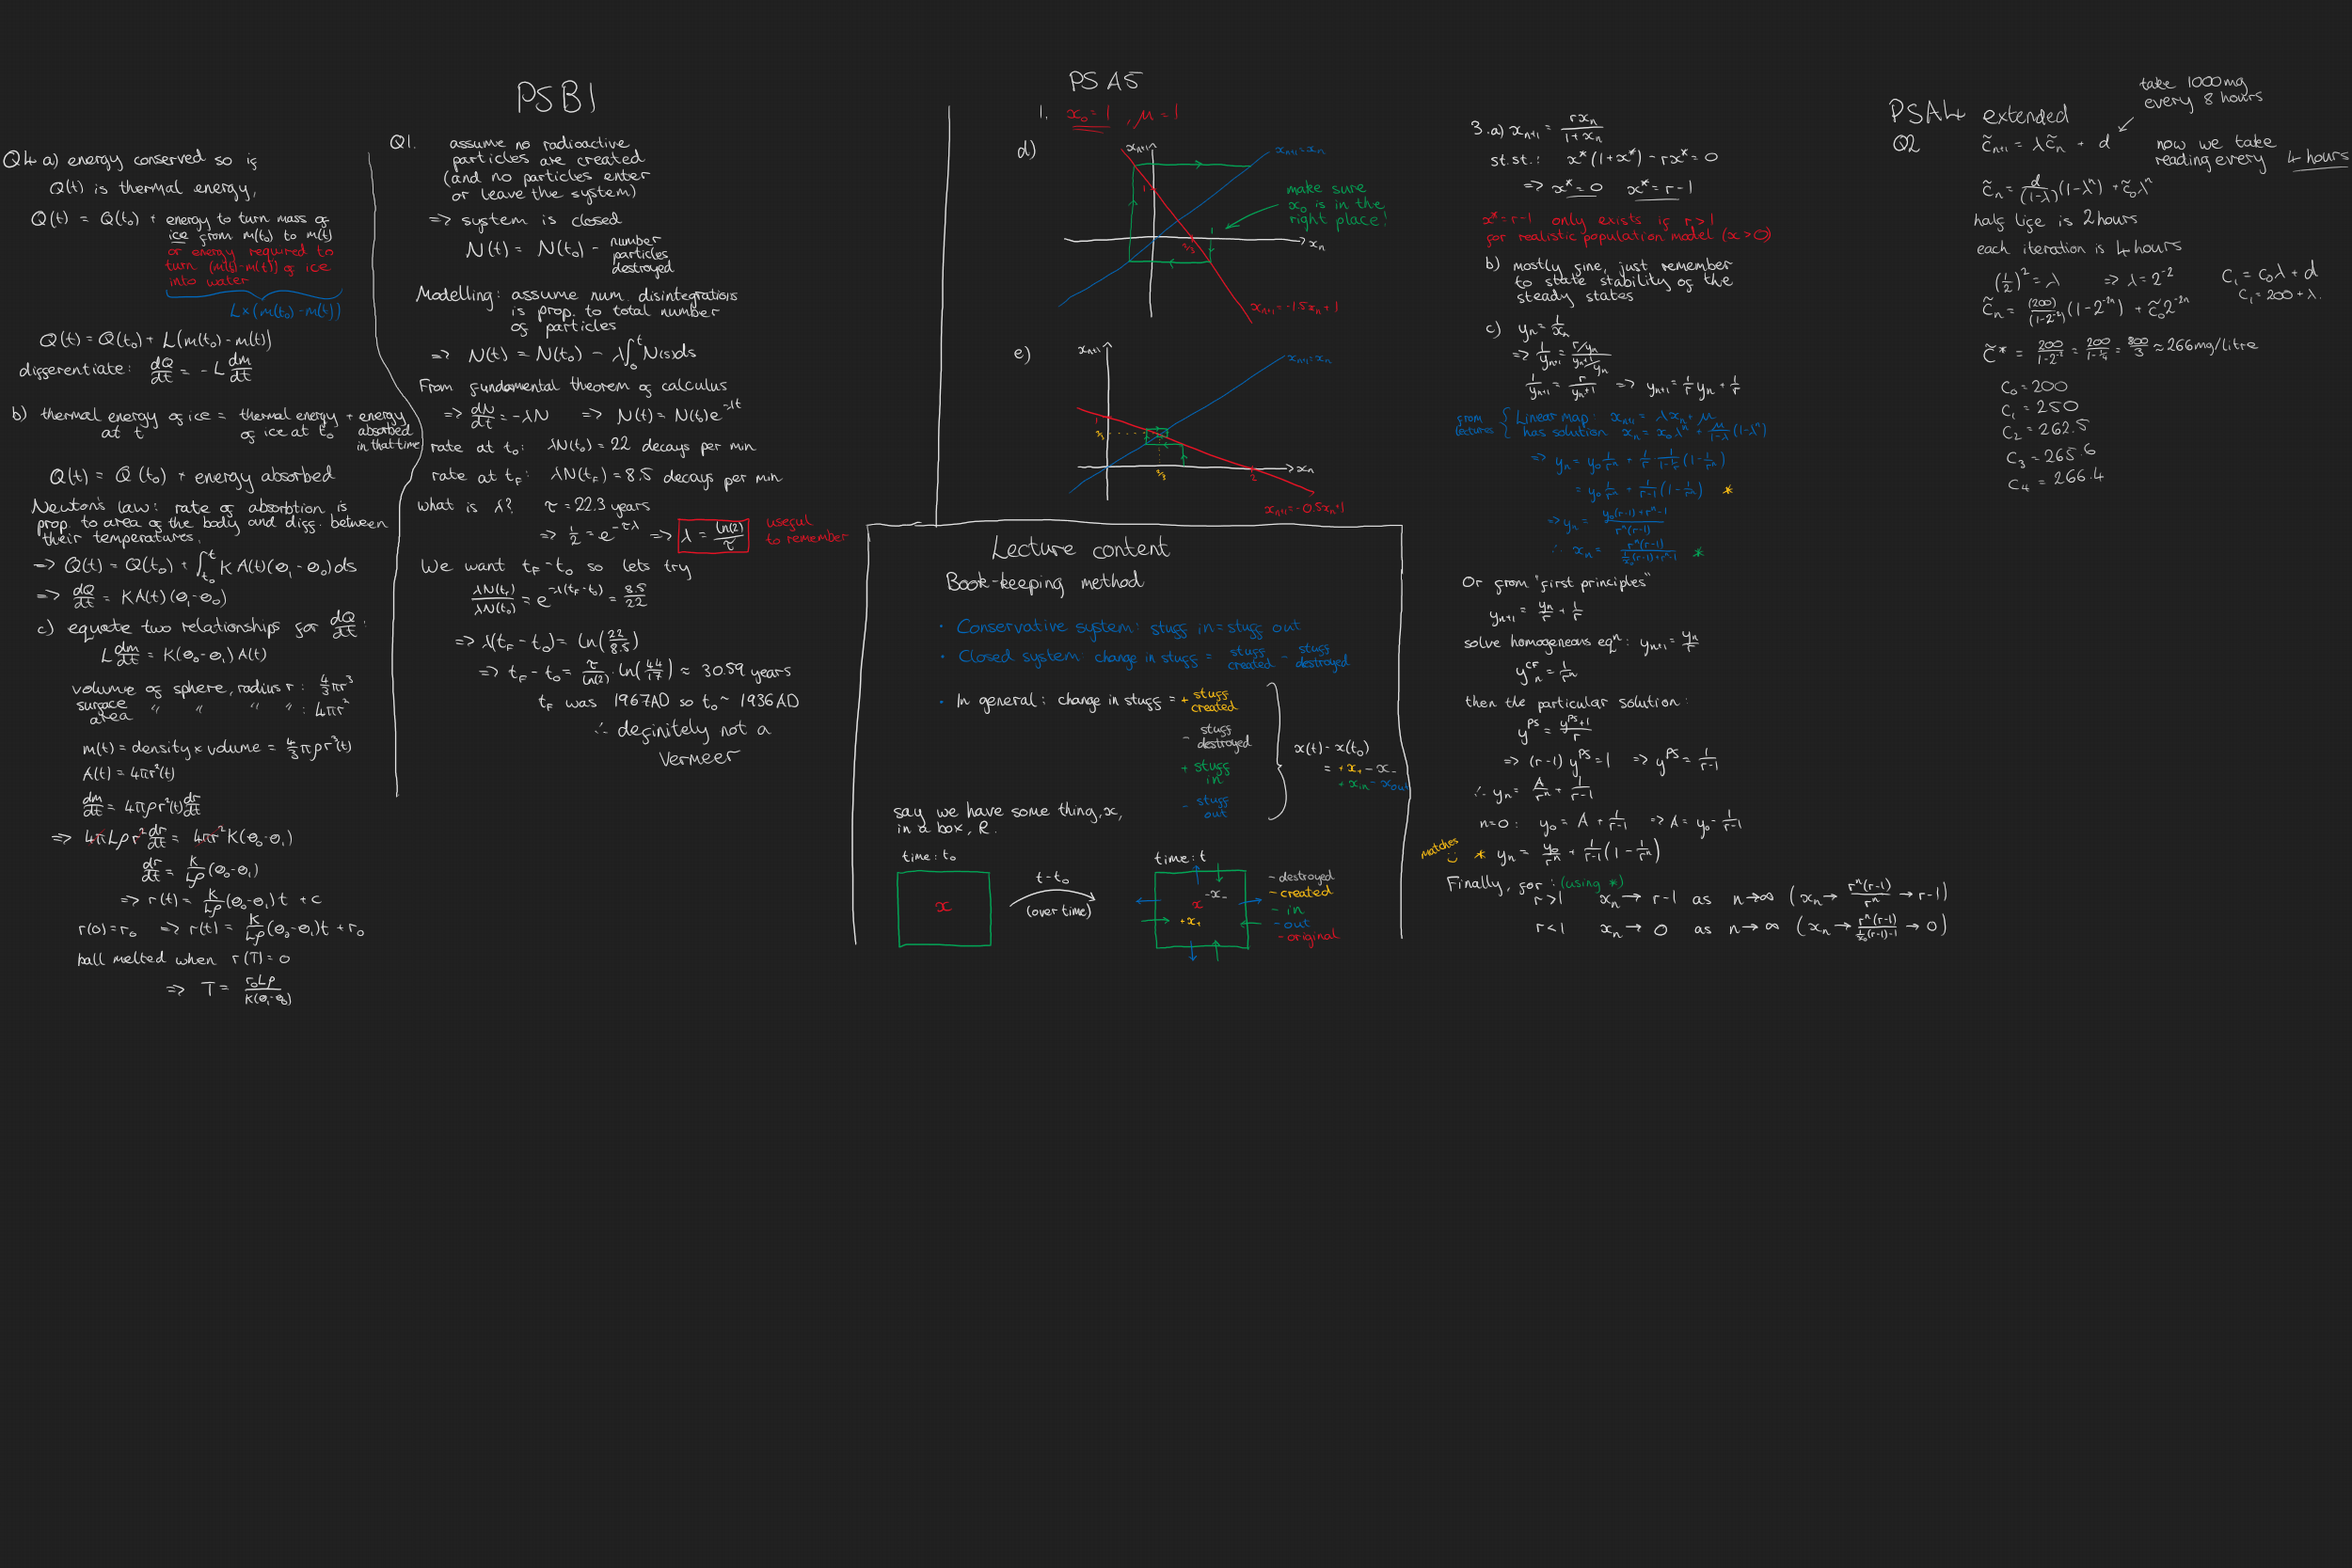 PSB1
Q4 a) energy conserved so if
Q(t) is thermal energy,
Q(t) = Q(t₀) + energy to turn mass of
ice from m(t₀) to m(t)
or energy required to
turn (m(t₀)-m(t)) of ice
into water
L×(m(t₀)-m(t))
Q(t) = Q(t₀) + L(m(t₀)-m(t))
differentiate: dQ/dt = -L dm/dt
b) thermal energy of ice = thermal energy + energy
at t of ice at t₀ absorbed
in that time
Q(t) = Q(t₀) + energy absorbed
Newton's law: rate of absorbtion is
prop. to area of the body and diff. between
their temperatures.
=> Q(t) = Q(t₀) + ∫_{t₀}^{t} K A(t)(θ₁-θ₀)ds
=> dQ/dt = KA(t)(θ₁-θ₀)
c) equate two relationships for dQ/dt:
L dm/dt = K(θ₀-θ₁)A(t)
volume of sphere, radius r: 4/3 πr³
surface area " " " " : 4πr²
m(t) = density × volume = 4/3 πρr³(t)
A(t) = 4πr²(t)
dm/dt = 4πρr²(t) dr/dt
=> 4πLρr² dr/dt = 4πr²K(θ₀-θ₁)
dr/dt = K/Lρ (θ₀-θ₁)
=> r(t) = K/Lρ (θ₀-θ₁)t + c
r(0)=r₀ => r(t) = K/Lρ (θ₀-θ₁)t + r₀
ball melted when r(T)=0
=> T = r₀Lρ/K(θ₁-θ₀)
Q1. assume no radioactive
particles are created
(and no particles enter
or leave the system)
=> system is closed
N(t) = N(t₀) - number
particles
destroyed
Modelling: assume num. disintegrations
is prop. to total number
of particles
=> N(t) = N(t₀) - λ∫₀ᵗ N(s)ds
From fundamental theorem of calculus
=> dN/dt = -λN => N(t) = N(t₀)e^{-λt}
rate at t₀: λN(t₀) = 22 decays per min
rate at t_F: λN(t_F) = 8.5 decays per min
what is λ? τ = 22.3 years
=> 1/2 = e^{-τλ} => λ = ln(2)/τ
useful
to remember
We want t_F-t₀ so lets try
λN(t_F)/λN(t₀) = e^{-λ(t_F-t₀)} = 8.5/22
=> λ(t_F-t₀) = ln(22/8.5)
=> t_F-t₀ = τ/ln(2) · ln(44/17) ≈ 30.59 years
t_F was 1967AD so t₀ ~ 1936AD
∴ definitely not a
Vermeer
PSA5
1. x₀=1, μ=1
d)
xₙ₊₁
xₙ₊₁=xₙ
1
make sure
x₀ is in the
right place!
1
2/3
xₙ
xₙ₊₁=-1.5xₙ+1
e)
xₙ₊₁
xₙ₊₁=xₙ
1
2/3
2/3
2
xₙ
xₙ₊₁=-0.5xₙ+1
Lecture content
Book-keeping method
• Conservative system: stuff in = stuff out
• Closed system: change in stuff = stuff created - stuff destroyed
• In general: change in stuff = + stuff created
- stuff destroyed
+ stuff in
- stuff out
x(t) - x(t₀)
= +x₊ - x₋
+ x_in - x_out
say we have some thing, x,
in a box, R.
time: t₀
x
t-t₀
(over time)
time: t
-x₋
x
+x₊
- destroyed
- created
- in
- out
- original
3.a) xₙ₊₁ = rxₙ/1+xₙ
st.st.: x*(1+x*) - rx* = 0
=> x*=0 x*=r-1
x*=r-1 only exists if r>1
for realistic population model (x>0)
b) mostly fine, just remember
to state stability of the
steady states
c) yₙ = 1/xₙ
=> 1/yₙ₊₁ = (r/yₙ)/((yₙ+1)/yₙ)
1/yₙ₊₁ = r/(yₙ+1) => yₙ₊₁ = 1/r yₙ + 1/r
from lectures { Linear map: xₙ₊₁ = λxₙ+μ
has solution xₙ = x₀λⁿ + μ/(1-λ) (1-λⁿ)
=> yₙ = y₀ 1/rⁿ + 1/r · 1/(1-1/r) (1-1/rⁿ)
= y₀ 1/rⁿ + 1/(r-1) (1-1/rⁿ) *
=> yₙ = (y₀(r-1)+rⁿ-1)/(rⁿ(r-1))
∴ xₙ = rⁿ(r-1)/(1/x₀ (r-1)+rⁿ-1) *
Or from "first principles"
yₙ₊₁ = yₙ/r + 1/r
solve homogeneous eqⁿ: yₙ₊₁ = yₙ/r
yₙ^{CF} = 1/rⁿ
then the particular solution:
y^{PS} = (y^{PS}+1)/r
=> (r-1)y^{PS} = 1 => y^{PS} = 1/(r-1)
∴ yₙ = A/rⁿ + 1/(r-1)
n=0: y₀ = A + 1/(r-1) => A = y₀ - 1/(r-1)
matches
* yₙ = y₀/rⁿ + 1/(r-1) (1-1/rⁿ)
Finally, for: (using *)
r>1 xₙ → r-1 as n→∞ (xₙ → rⁿ(r-1)/rⁿ → r-1)
r<1 xₙ → 0 as n→∞ (xₙ → rⁿ(r-1)/(1/x₀ (r-1)-1) → 0)
PSA4 extended
take 1000mg
every 8 hours
Q2 c̃ₙ₊₁ = λc̃ₙ + d
now we take
reading every 4 hours
c̃ₙ = d/(1-λ) (1-λⁿ) + c̃₀λⁿ
half life is 2 hours
each iteration is 4 hours
(1/2)² = λ => λ = 2⁻²
C₁ = C₀λ + d
C₁ = 200 + λ.
c̃ₙ = (200)/(1-2⁻²) (1-2⁻²ⁿ) + c̃₀2⁻²ⁿ
c̃* = 200/(1-2⁻²) = 200/(1-1/4) = 800/3 ≈ 266mg/litre
C₀ = 200
C₁ = 250
C₂ = 262.5
C₃ = 265.6
C₄ = 266.4